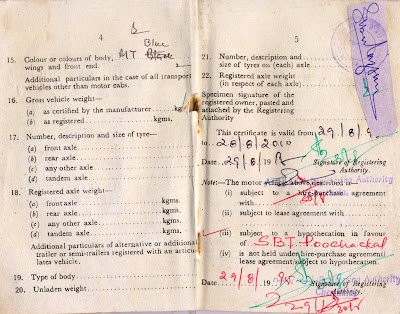 4
15. Colour or colours of body,
wings and front end.
Blue
MT
Additional particulars in the case of all transport
vehicles other than motor cabs.
16. Gross vehicle weight—
(a) as certified by the manufacturer ... kg
(b) as registered ............ kgms.
17. Number, description and size of tyre—
(a) front axle ..................
(b) rear axle ..................
(c) any other axle ..................
(d) tandem axle ..................
18. Registered axle weight—
(a) front axle ............ kgms.
(b) rear axle ............ kgms.
(c) any other axle ............ kgms.
(d) tandem axle ............ kgms.
Additional particulars of alternative or additional
trailer or semi-trailers registered with an articu-
lates vehicle.
19. Type of body ..................
20. Unladen weight ..................
5
21. Number, description and ............
size of tyres on (each) axle ............
22. Registered axle weight ............
(in respect of each axle) ............
Specimen signature of the
registered owner, pasted and
attached by the Registering
Authority
This certificate is valid from 29/8/9
to 28/8/2010
Date 29/8/19 Signature of Registering
Authority.
Note:—The motor vehicle above described is
(i) subject to a hire-purchase agreement
with
(ii) subject to lease agreement with ............
(iii) subject to a hypothecation in favour
of SBT Poochackal
(iv) is not held under hire-purchase agreement
lease agreement/subject to hypothecation.
Date 29/8/1995 Signature of Registering
Authority.